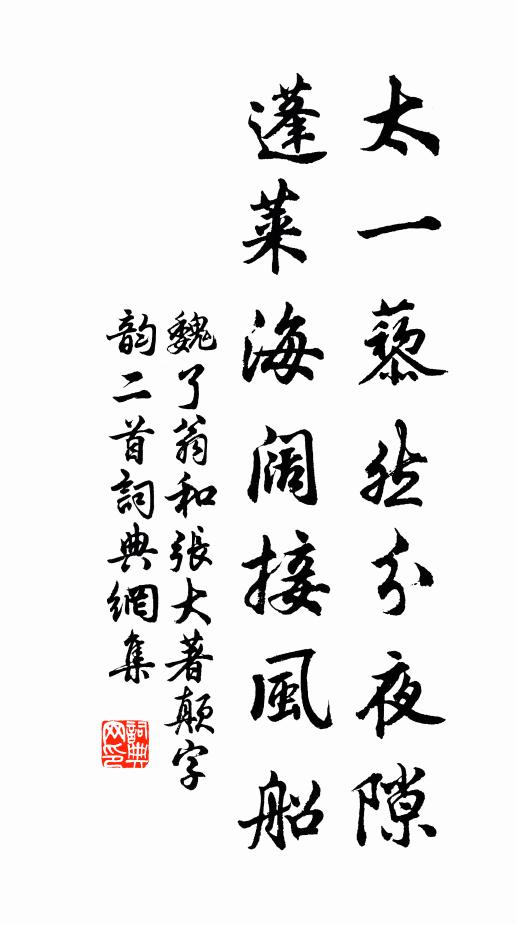 太一藜然分夜隙
蓬莱海阔接風船
魏了翁和張大著顛字
韵二首詞典網集
詞典網印